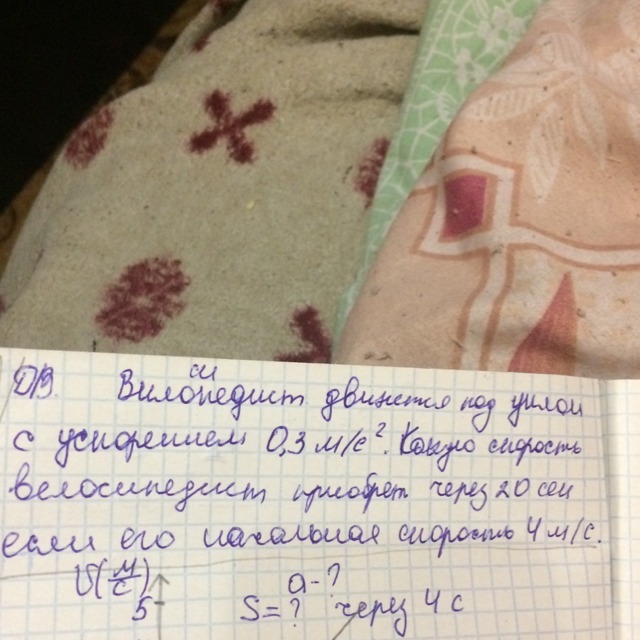 Д/З. Вилосипедист движется под уклон
с ускорением 0,3 м/с². Какую скорость
велосипедист приобрет через 20 сек
если его начальная скорость 4 м/с.
V(м/с) a-?
5 S=? через 4 с